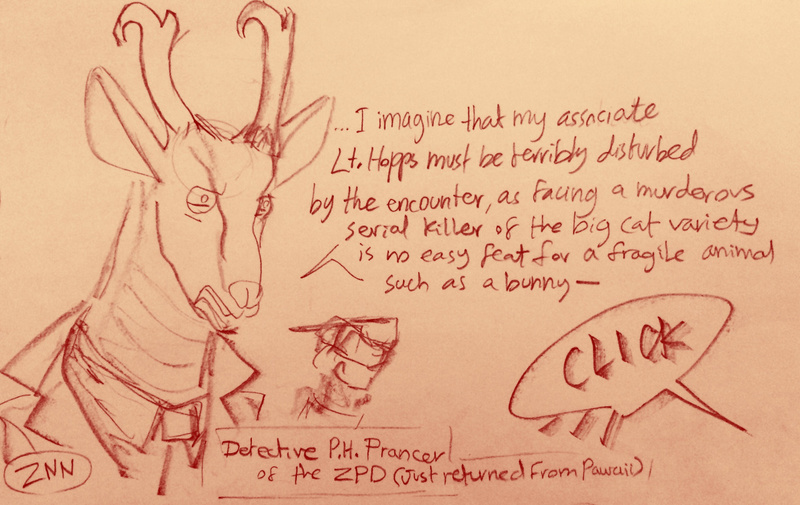 ...I imagine that my associate
Lt. Hopps must be terribly disturbed
by the encounter, as facing a murderous
serial killer of the big cat variety
is no easy feat for a fragile animal
such as a bunny—
CLICK
Detective P.H. Prancer
of the ZPD (Just returned from Pawaii)
ZNN